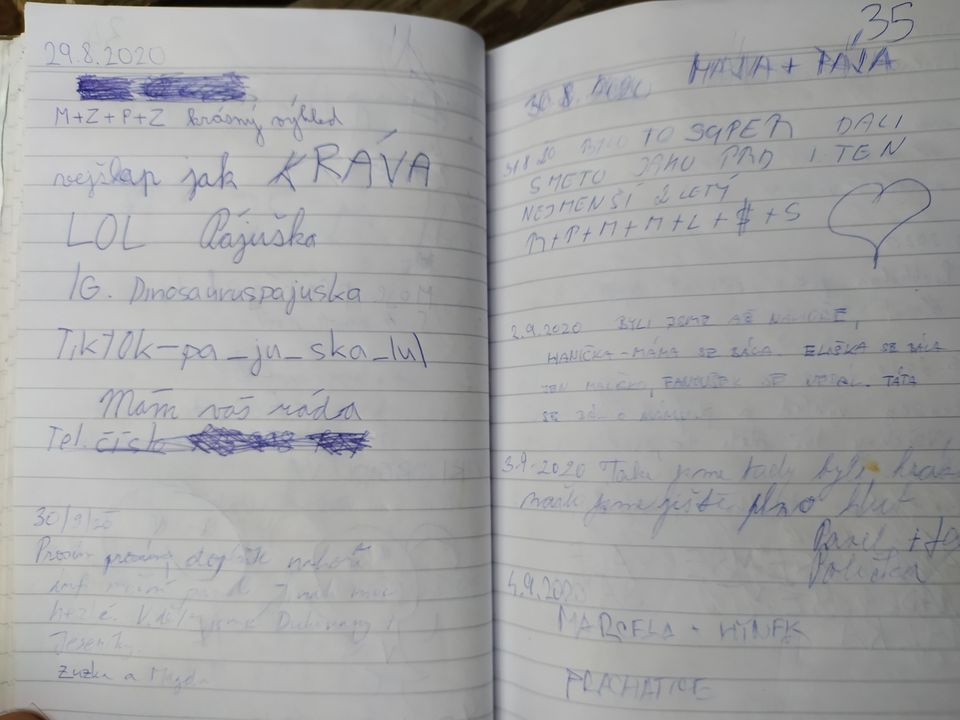 29.8.2020
M+Z+P+Z krásný výhled
vejšlap jak KRÁVA
LOL Pájuška
IG. Dinosauruspajuska
TikTOk-pa_ju_ska_lul
Mám vás ráda
Tel. číslo
30/8/20
Prosím prosím, doplňte
hezké. Viděli jsme
Jeseníky.
Zuzka a Magda
35
30.8.2020 MÁJA + PÁJA
31.8.20 BYLO TO SUPER DALI
SMETO JAKO PRD I TEN
NEJMENŠÍ 2 LETÝ
M+P+M+M+L+$+S
2.9.2020 BYLI JSME AŽ NAHOŘE,
HANIČKA-MÁMA SE BÁLA. ELIŠKA SE BÁLA
JEN MALIČKO, FANOUŠEK SE NEBÁL. TÁTA
SE BÁL O MÁMU.
3.9.2020 Také jsme tady byli
našli jsme ještě plno hub
Polička
4.9.2020
MARCELA + HYNEK
PRACHATICE